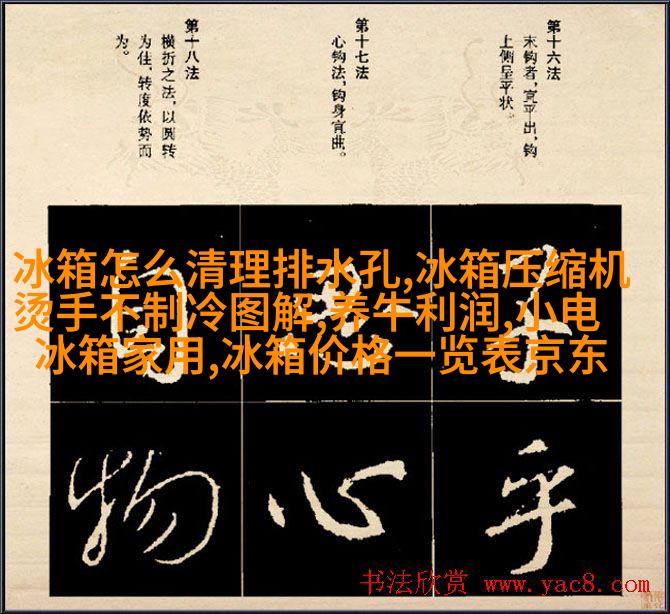 第十六法
末钩者,宜平出,钩
上侧呈平状。
第十七法
心钩法,钩身宜曲。
第十八法
横折之法,以圆转
为佳,转度依势而
为。
冰箱怎么清理排水孔,冰箱压缩机
烫手不制冷图解,养牛利润,小电
冰箱家用,冰箱价格一览表京东
手
自
乎
心
物
书法欣赏 www.yac8.com